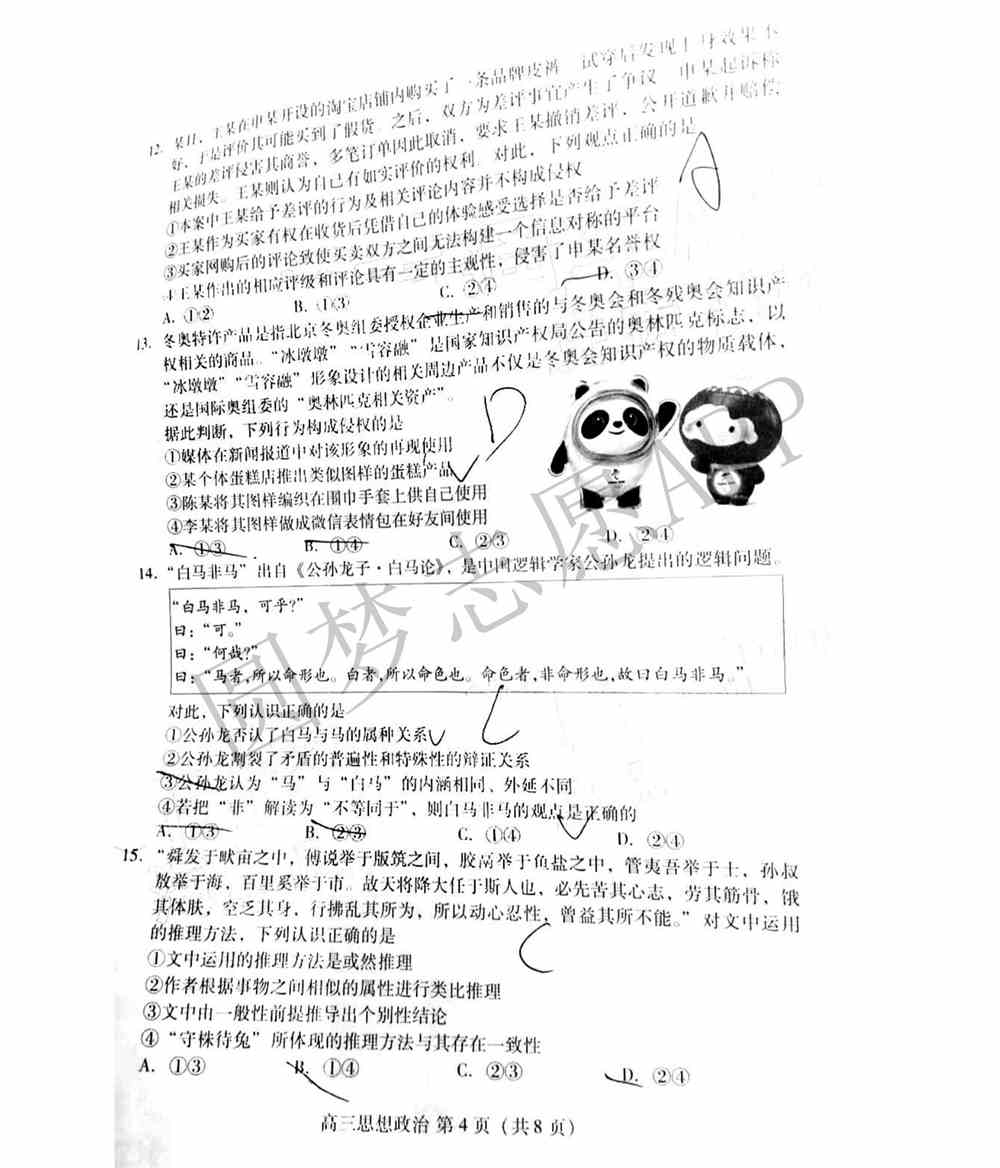 12. 某日，王某在申某开设的淘宝店铺内购买了一条品牌皮裤，试穿后发现上身效果不
好，于是评价其可能买到了假货。之后，双方为差评事宜产生了争议，申某起诉称
王某的差评侵害其商誉，多笔订单因此取消，要求王某撤销差评，公开道歉并赔偿
相关损失。王某则认为自己有如实评价的权利。对此，下列观点正确的是
A
①本案中王某给予差评的行为及相关评论内容并不构成侵权
②王某作为买家有权在收货后凭借自己的体验感受选择是否给予差评
③买家网购后的评论致使买卖双方之间无法构建一个信息对称的平台
④王某作出的相应评级和评论具有一定的主观性，侵害了申某名誉权
A. ①② B. ①③ C. ②④ D. ③④
13. 冬奥特许产品是指北京冬奥组委授权企业生产和销售的与冬奥会和冬残奥会知识产
权相关的商品。“冰墩墩”“雪容融”是国家知识产权局公告的奥林匹克标志，以
“冰墩墩”“雪容融”形象设计的相关周边产品不仅是冬奥会知识产权的物质载体，
还是国际奥组委的“奥林匹克相关资产”。
据此判断，下列行为构成侵权的是
D
①媒体在新闻报道中对该形象的再现使用
②某个体蛋糕店推出类似图样的蛋糕产品
③陈某将其图样编织在围巾手套上供自己使用
④李某将其图样做成微信表情包在好友间使用
A. ①③ B. ①④ C. ②③ D. ②④
14. “白马非马”出自《公孙龙子·白马论》，是中国逻辑学家公孙龙提出的逻辑问题。
“白马非马，可乎？”
曰：“可。”
曰：“何哉？”
曰：“马者，所以命形也。白者，所以命色也。命色者，非命形也，故曰白马非马。”
对此，下列认识正确的是
C
①公孙龙否认了白马与马的属种关系
②公孙龙割裂了矛盾的普遍性和特殊性的辩证关系
③公孙龙认为“马”与“白马”的内涵相同、外延不同
④若把“非”解读为“不等同于”，则白马非马的观点是正确的
A. ①③ B. ②③ C. ①④ D. ②④
15. “舜发于畎亩之中，傅说举于版筑之间，胶鬲举于鱼盐之中，管夷吾举于士，孙叔
敖举于海，百里奚举于市。故天将降大任于斯人也，必先苦其心志，劳其筋骨，饿
其体肤，空乏其身，行拂乱其所为，所以动心忍性，曾益其所不能。”对文中运用
的推理方法，下列认识正确的是
C
①文中运用的推理方法是或然推理
②作者根据事物之间相似的属性进行类比推理
③文中由一般性前提推导出个别性结论
④“守株待兔”所体现的推理方法与其存在一致性
A. ①③ B. ①④ C. ②③ D. ②④
高三思想政治 第 4 页（共 8 页）
圆梦志愿APP